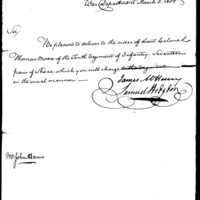 War Department March 5. 1800
Sir,
Be pleased to deliver to the order of Lieut Colonel
Thomas Moore of the Tenth Regiment of Infantry, Seventeen
pairs of Shoes, which you will charge
in the usual manner.
James McHenry
Samuel Hodgdon
Mr John Harris